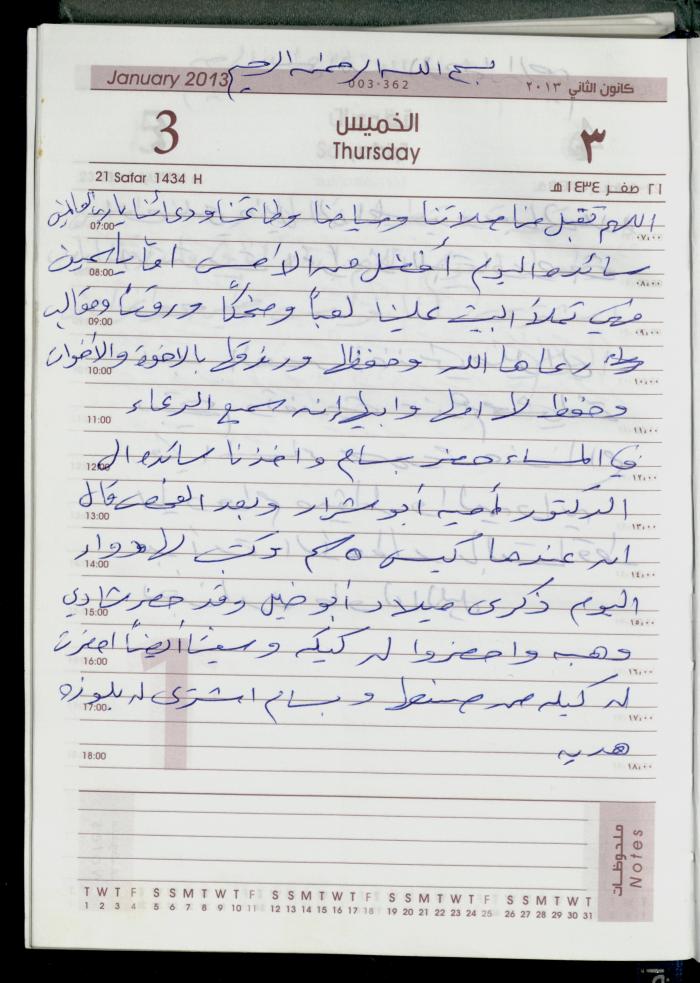 بسم الله الرحمن الرحيم
January 2013 003-362 كانون الثاني ٢٠١٣
3 الخميس ٣
Thursday
21 Safar 1434 H ٢١ صفر ١٤٣٤هـ
اللهم تقبل منا صلاتنا وصيامنا وطاعتنا ودعائنا يا رب العالمين
07:00 ٠٧:٠٠
سائده اليوم أفضل من الأمس أما ياسمين
08:00 ٠٨:٠٠
فهي تملأ البيت علينا لعباً وضحكاً ورقصاً ومقالب
09:00 ٠٩:٠٠
رعاها الله وحفظها ورزقها بالاخوة والأخوات
10:00 ١٠:٠٠
وحفظ لامها وابيها إنه سميع الدعاء
11:00 ١١:٠٠
في المساء حضر بسام واخذنا سائده ال
12:00 ١٢:٠٠
الدكتور أبو شرار وبعد الفحص قال
13:00 ١٣:٠٠
ان عندها كيس ٥ سم وكتب لها دواء
14:00 ١٤:٠٠
اليوم ذكرى ميلاد أبو خليل وقد حضر شادي
15:00 ١٥:٠٠
وهبه واحضروا له كيكه أيضاً احضرت
16:00 ١٦:٠٠
له كيله وبسام اشترى له بلوزه
17:00 ١٧:٠٠
هديه
18:00 ١٨:٠٠
ملحوظات Notes
T W T F S S M T W T F S S M T W T F S S M T W T F S S M T W T
1 2 3 4 5 6 7 8 9 10 11 12 13 14 15 16 17 18 19 20 21 22 23 24 25 26 27 28 29 30 31